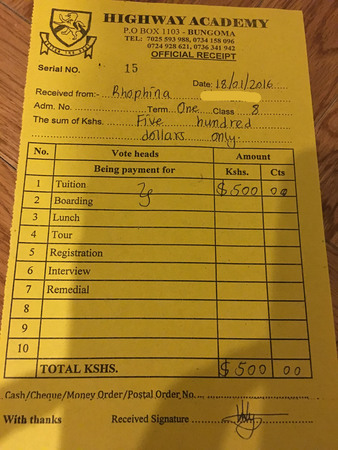 HIGHWAY ACADEMY
P.O BOX 1103 - BUNGOMA
TEL: 7025 593 988, 0734 158 096
0724 928 621, 0736 341 942
OFFICIAL RECEIPT
Serial NO. 15
Date: 18/01/2016
Received from:- Rhophina
Adm. No. Term One Class 8
The sum of Kshs. Five hundred
dollars only
No. Vote heads Amount
Being payment for Kshs. Cts
1 Tuition $500 00
2 Boarding
3 Lunch
4 Tour
5 Registration
6 Interview
7 Remedial
8
9
10
TOTAL KSHS. $500 00
Cash/Cheque/Money Order/Postal Order No.
With thanks Received Signature